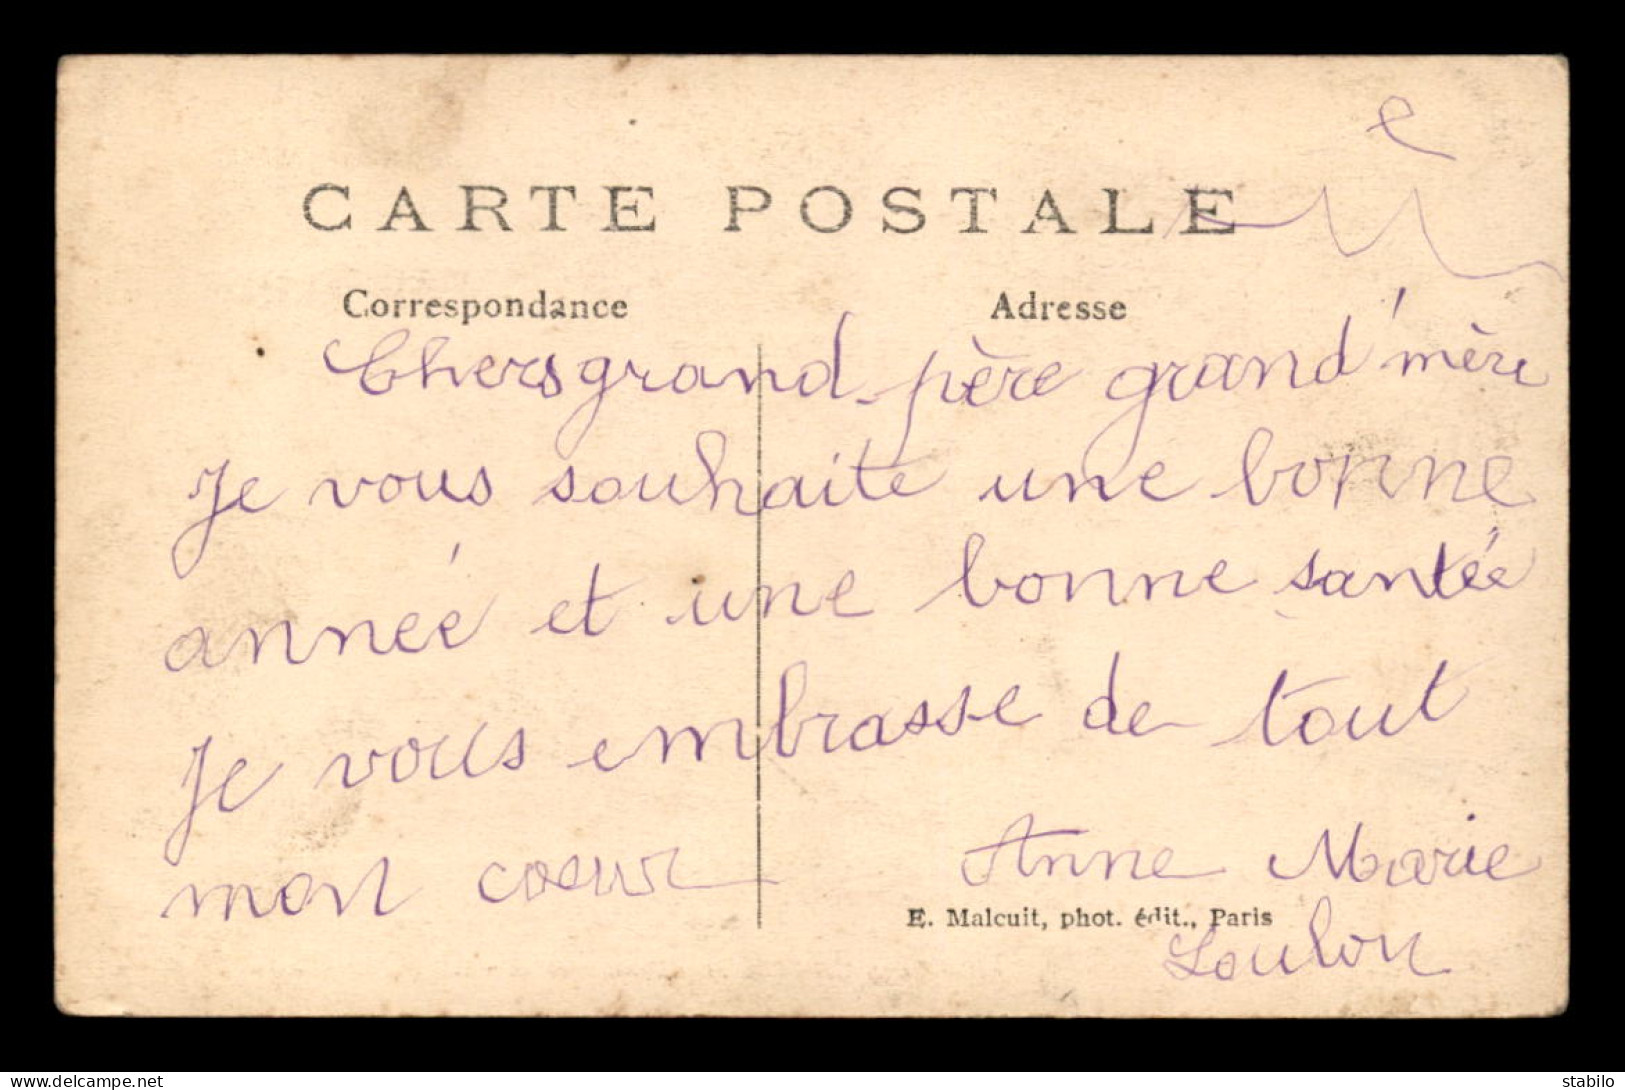 CARTE POSTALE
Correspondance Adresse
Chers grand-père grand'mère
Je vous souhaite une bonne
année et une bonne santée
Je vous embrasse de tout
mon coeur Anne Marie
E. Malcuit, phot. édit., Paris
Loulou
www.delcampe.net stabilo